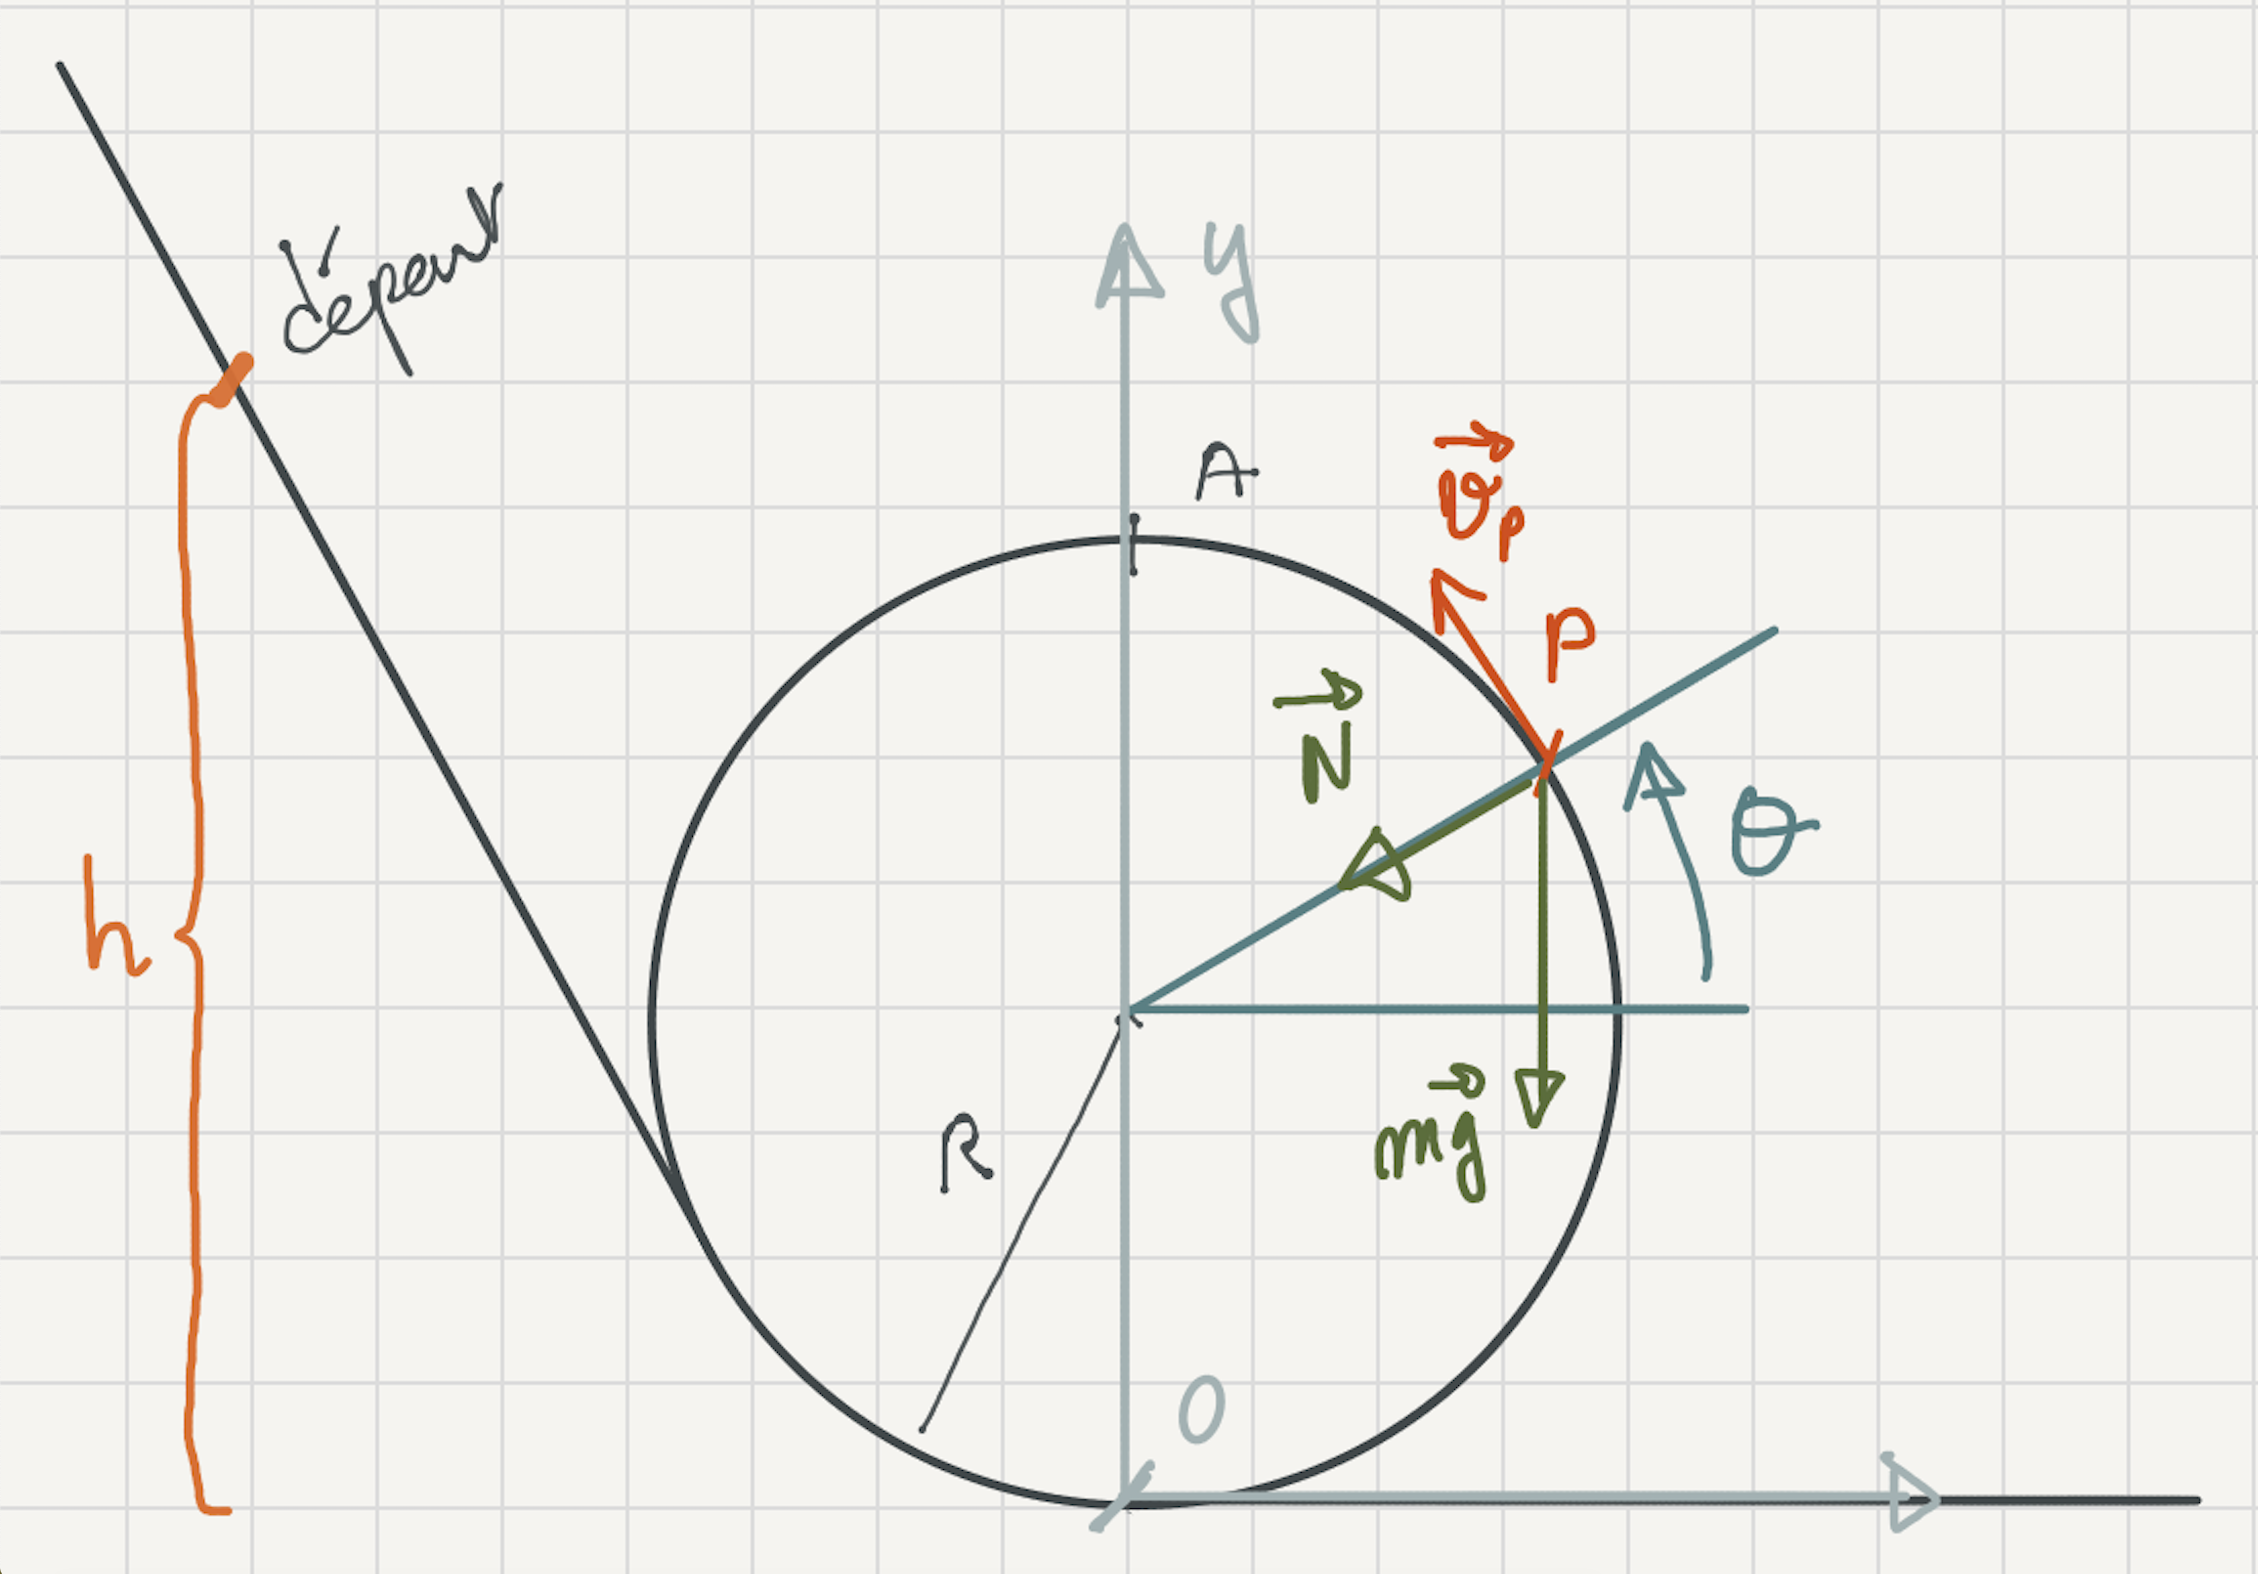 départ
y
A
v⃗p
P
N⃗
θ
h
mg⃗
R
O